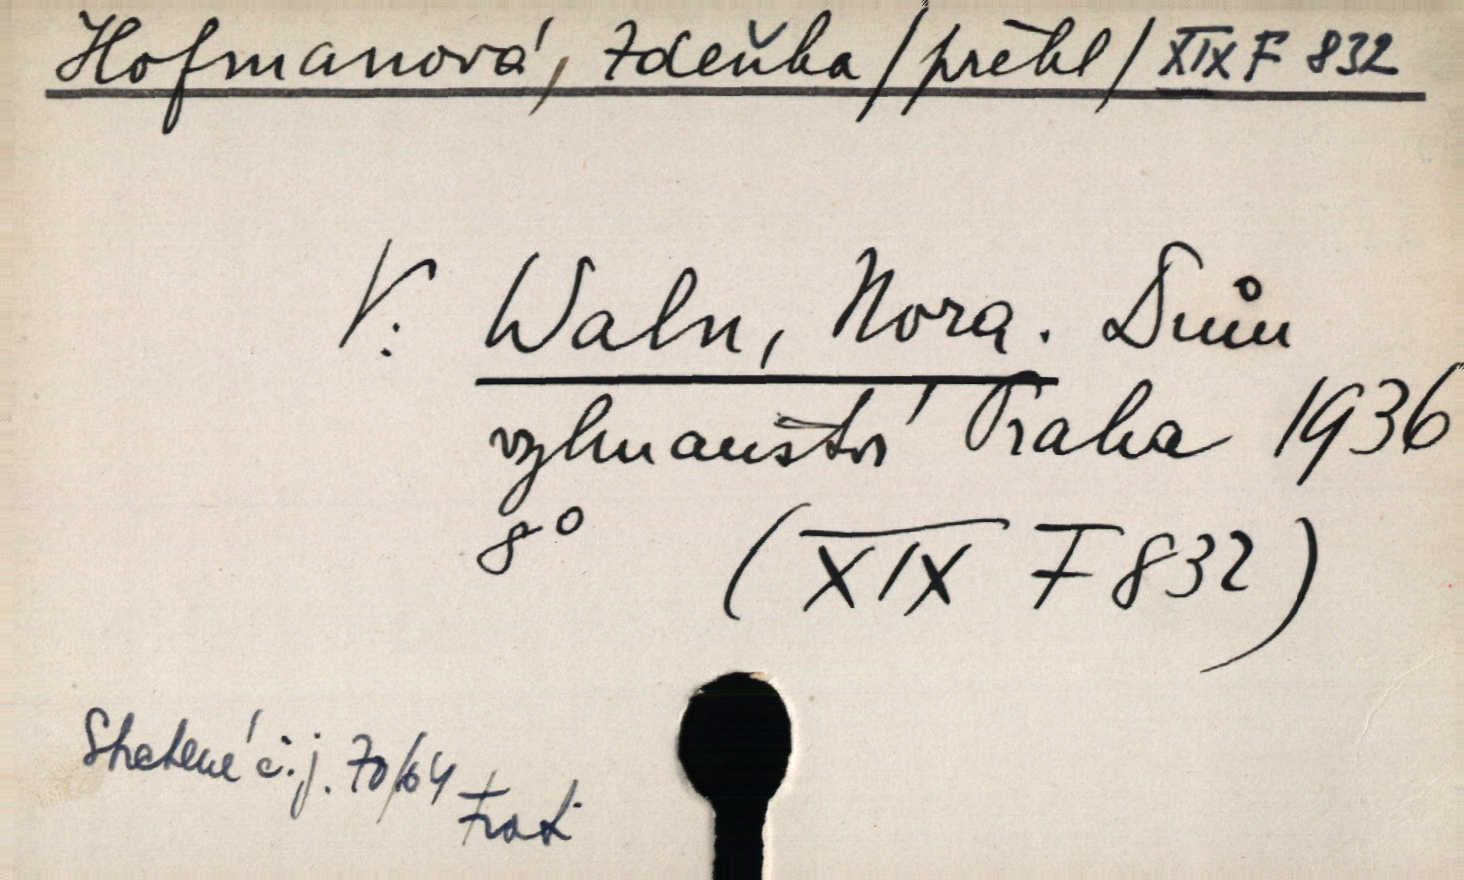 Hofmanová, Zdeňka /překl/ XIX F 832
V: Waln, Nora. Dům
vyhnanství Praha 1936
8°
(XIX F 832)
Ztracené č.j. 70/64